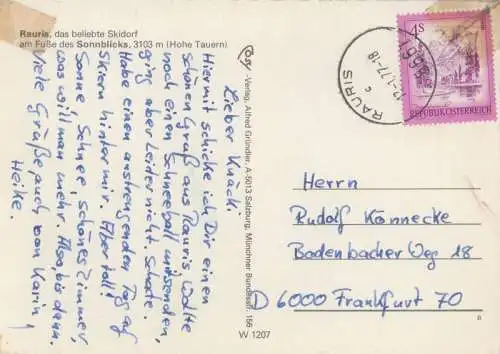 Rauris, das beliebte Skidorf
am Fuße des Sonnblicks, 3103 m (Hohe Tauern)
Lieber Knäck.
Hiermit schicke ich Dir einen
schönen Gruß aus Rauris. Wollte
noch einen Schneeball mitsenden,
ging aber leider nicht. Schade.
Habe einen anstrengenden Tag auf
Skiern hinter mir. Aber toll!
Sonne, Schnee, schönes Zimmer
was will man mehr. Also, bis dann.
Viele Grüße auch von Karin,
Heike.
Cosy-Verlag, Alfred Gründler, A-5013 Salzburg, Münchner Bundesstr. 156
W 1207
4S
REPUBLIK ÖSTERREICH
5661
-1.77-18
RAURIS
c
Herrn
Rudolf Könnecke
Bodenbacher Weg 18
D 6000 Frankfurt 70